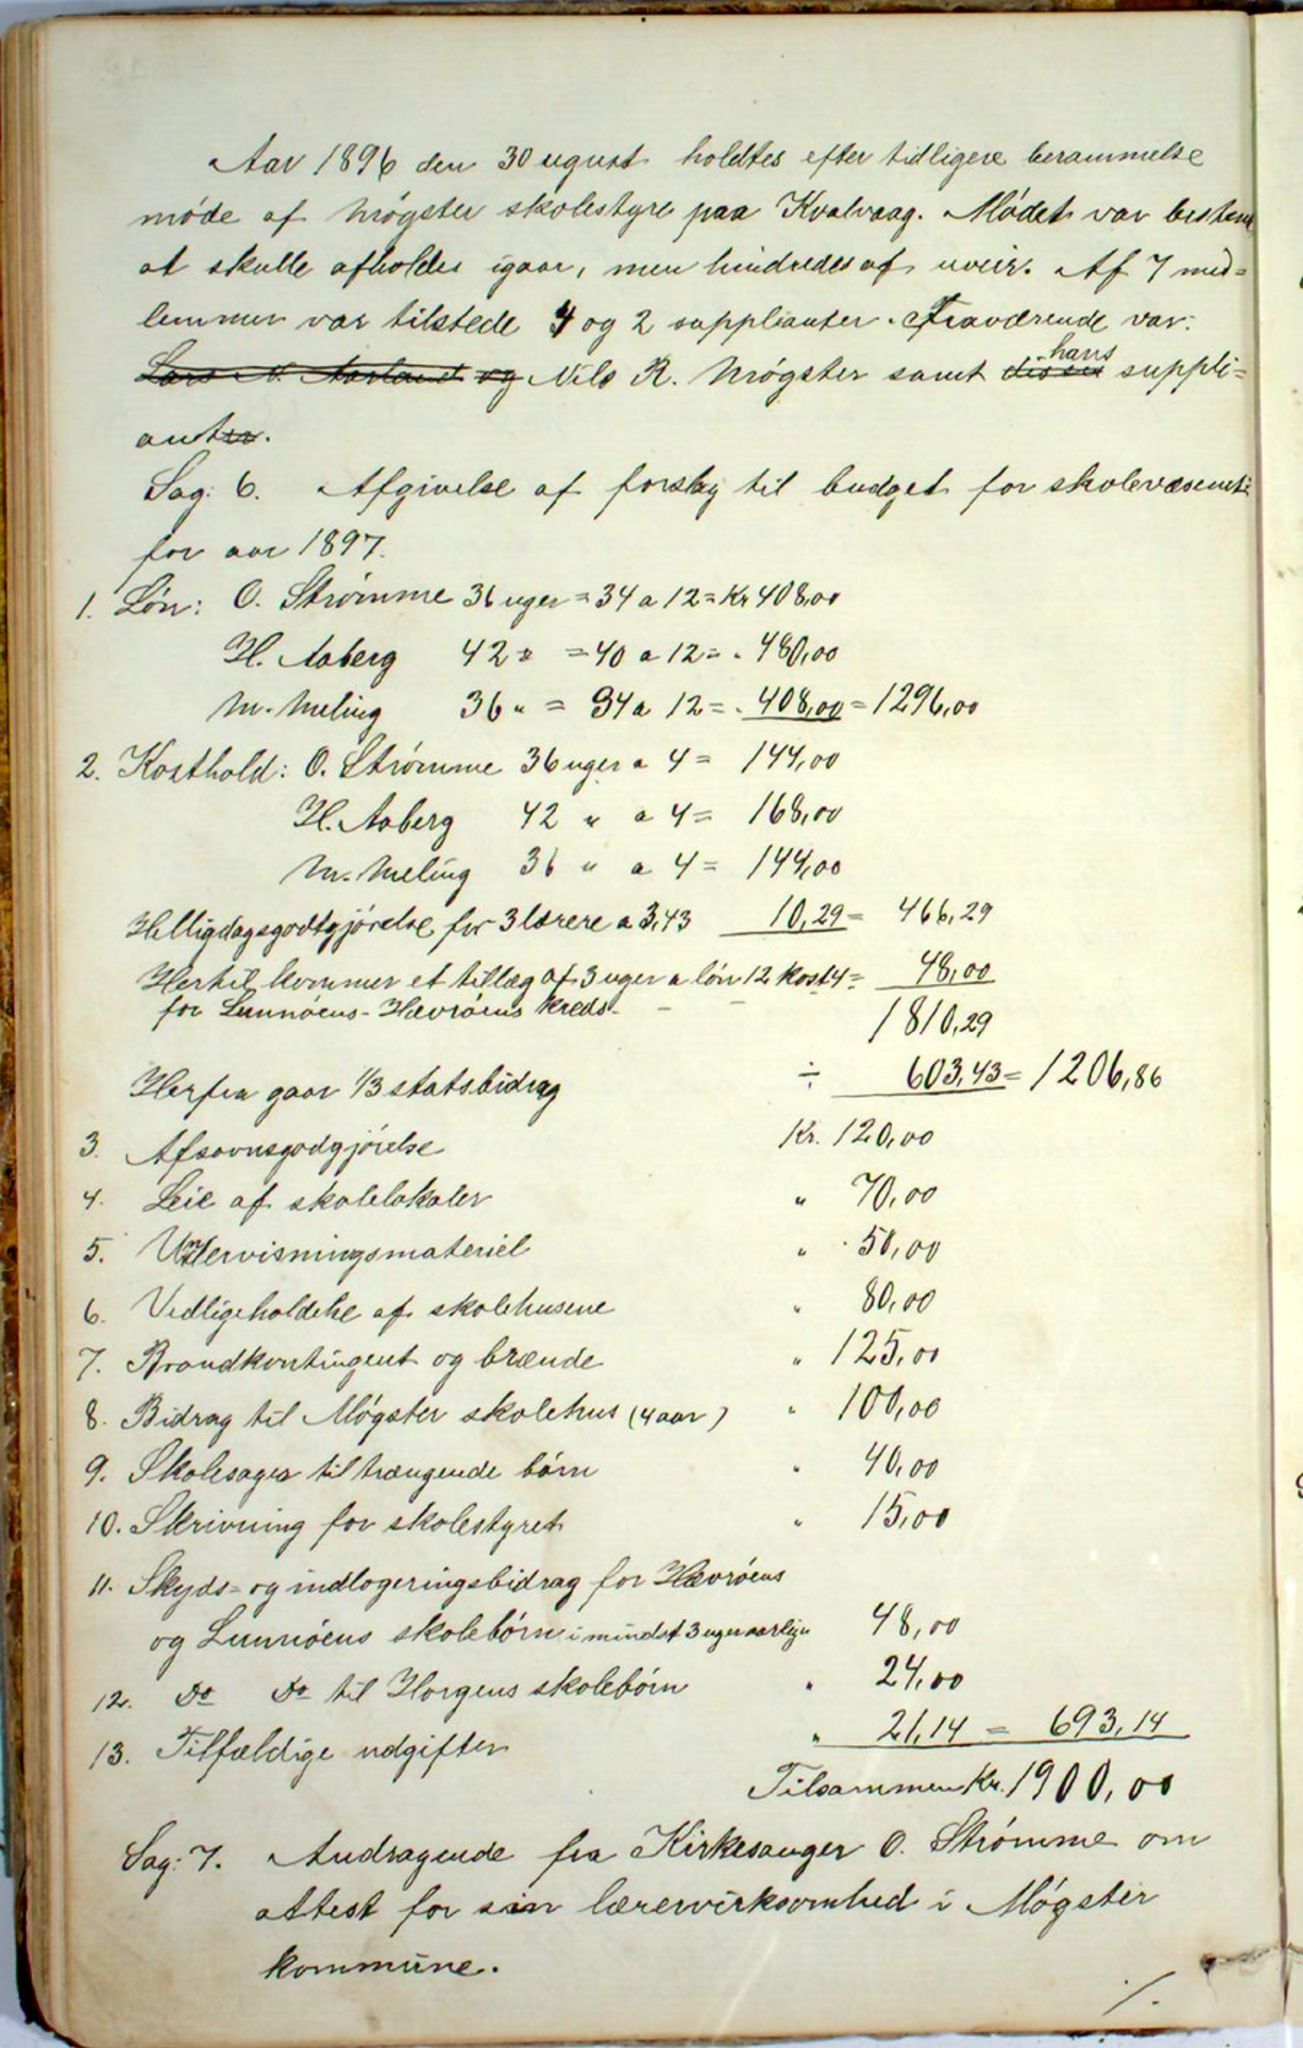 Aar 1896 den 30 ugust holdtes efter tidligere berammelse
møde af Møgster skolestyre paa Kvalvaag. Mødet var bestemt
at skulle afholdes igaar, men hindredes af uveir. Af 7 med=
lemmer var tilstede 4 og 2 supplianter. Fraværende var:
Lars N. Aarland og Nils R. Møgster samt disses hans suppli=
anter.
Sag: 6. Afgivelse af forslag til budget for skolevæsenet
for aar 1897.
1. Løn: O. Strømme 36 uger = 34 a 12 = Kr 408,00
H. Aaberg 42 " = 40 a 12 = " 480,00
M. Meling 36 " = 34 a 12 = " 408,00 = 1296,00
2. Kosthold: O. Strømme 36 uger a 4 = 144,00
H. Aaberg 42 " a 4 = 168,00
M. Meling 36 " a 4 = 144,00
Helligdagsgodtgjørelse for 3 lærere a 3,43 10,29 = 466,29
Hertil kommer et tillæg af 3 uger a løn 12 kost 4 = 48,00
for Lunnøens - Hævrøens kreds - 1810,29
Herfra gaar 1/3 statsbidrag ÷ 603,43 = 1206,86
3. Afsavnsgodgjørelse Kr. 120,00
4. Leie af skolelokaler " 70,00
5. Undervisningsmateriel " 50,00
6. Vedligeholdelse af skolehusene " 80,00
7. Brandkontingent og brænde " 125,00
8. Bidrag til Møgster skolehus (4 aar) " 100,00
9. Skolesager til trængende børn " 40,00
10. Skrivning for skolestyret " 15,00
11. Skyds- og indlogeringsbidrag for Hævrøens
og Lunnøens skolebørn i mindst 3 uger aarlig " 48,00
12. Do Do til Horgens skolebørn " 24,00
13. Tilfældige udgifter " 21,14 = 693,14
Tilsammen Kr. 1900,00
Sag: 7. Andragende fra Kirkesanger O. Strømme om
attest for sin lærervirksomhed i Møgster
kommune.
./.